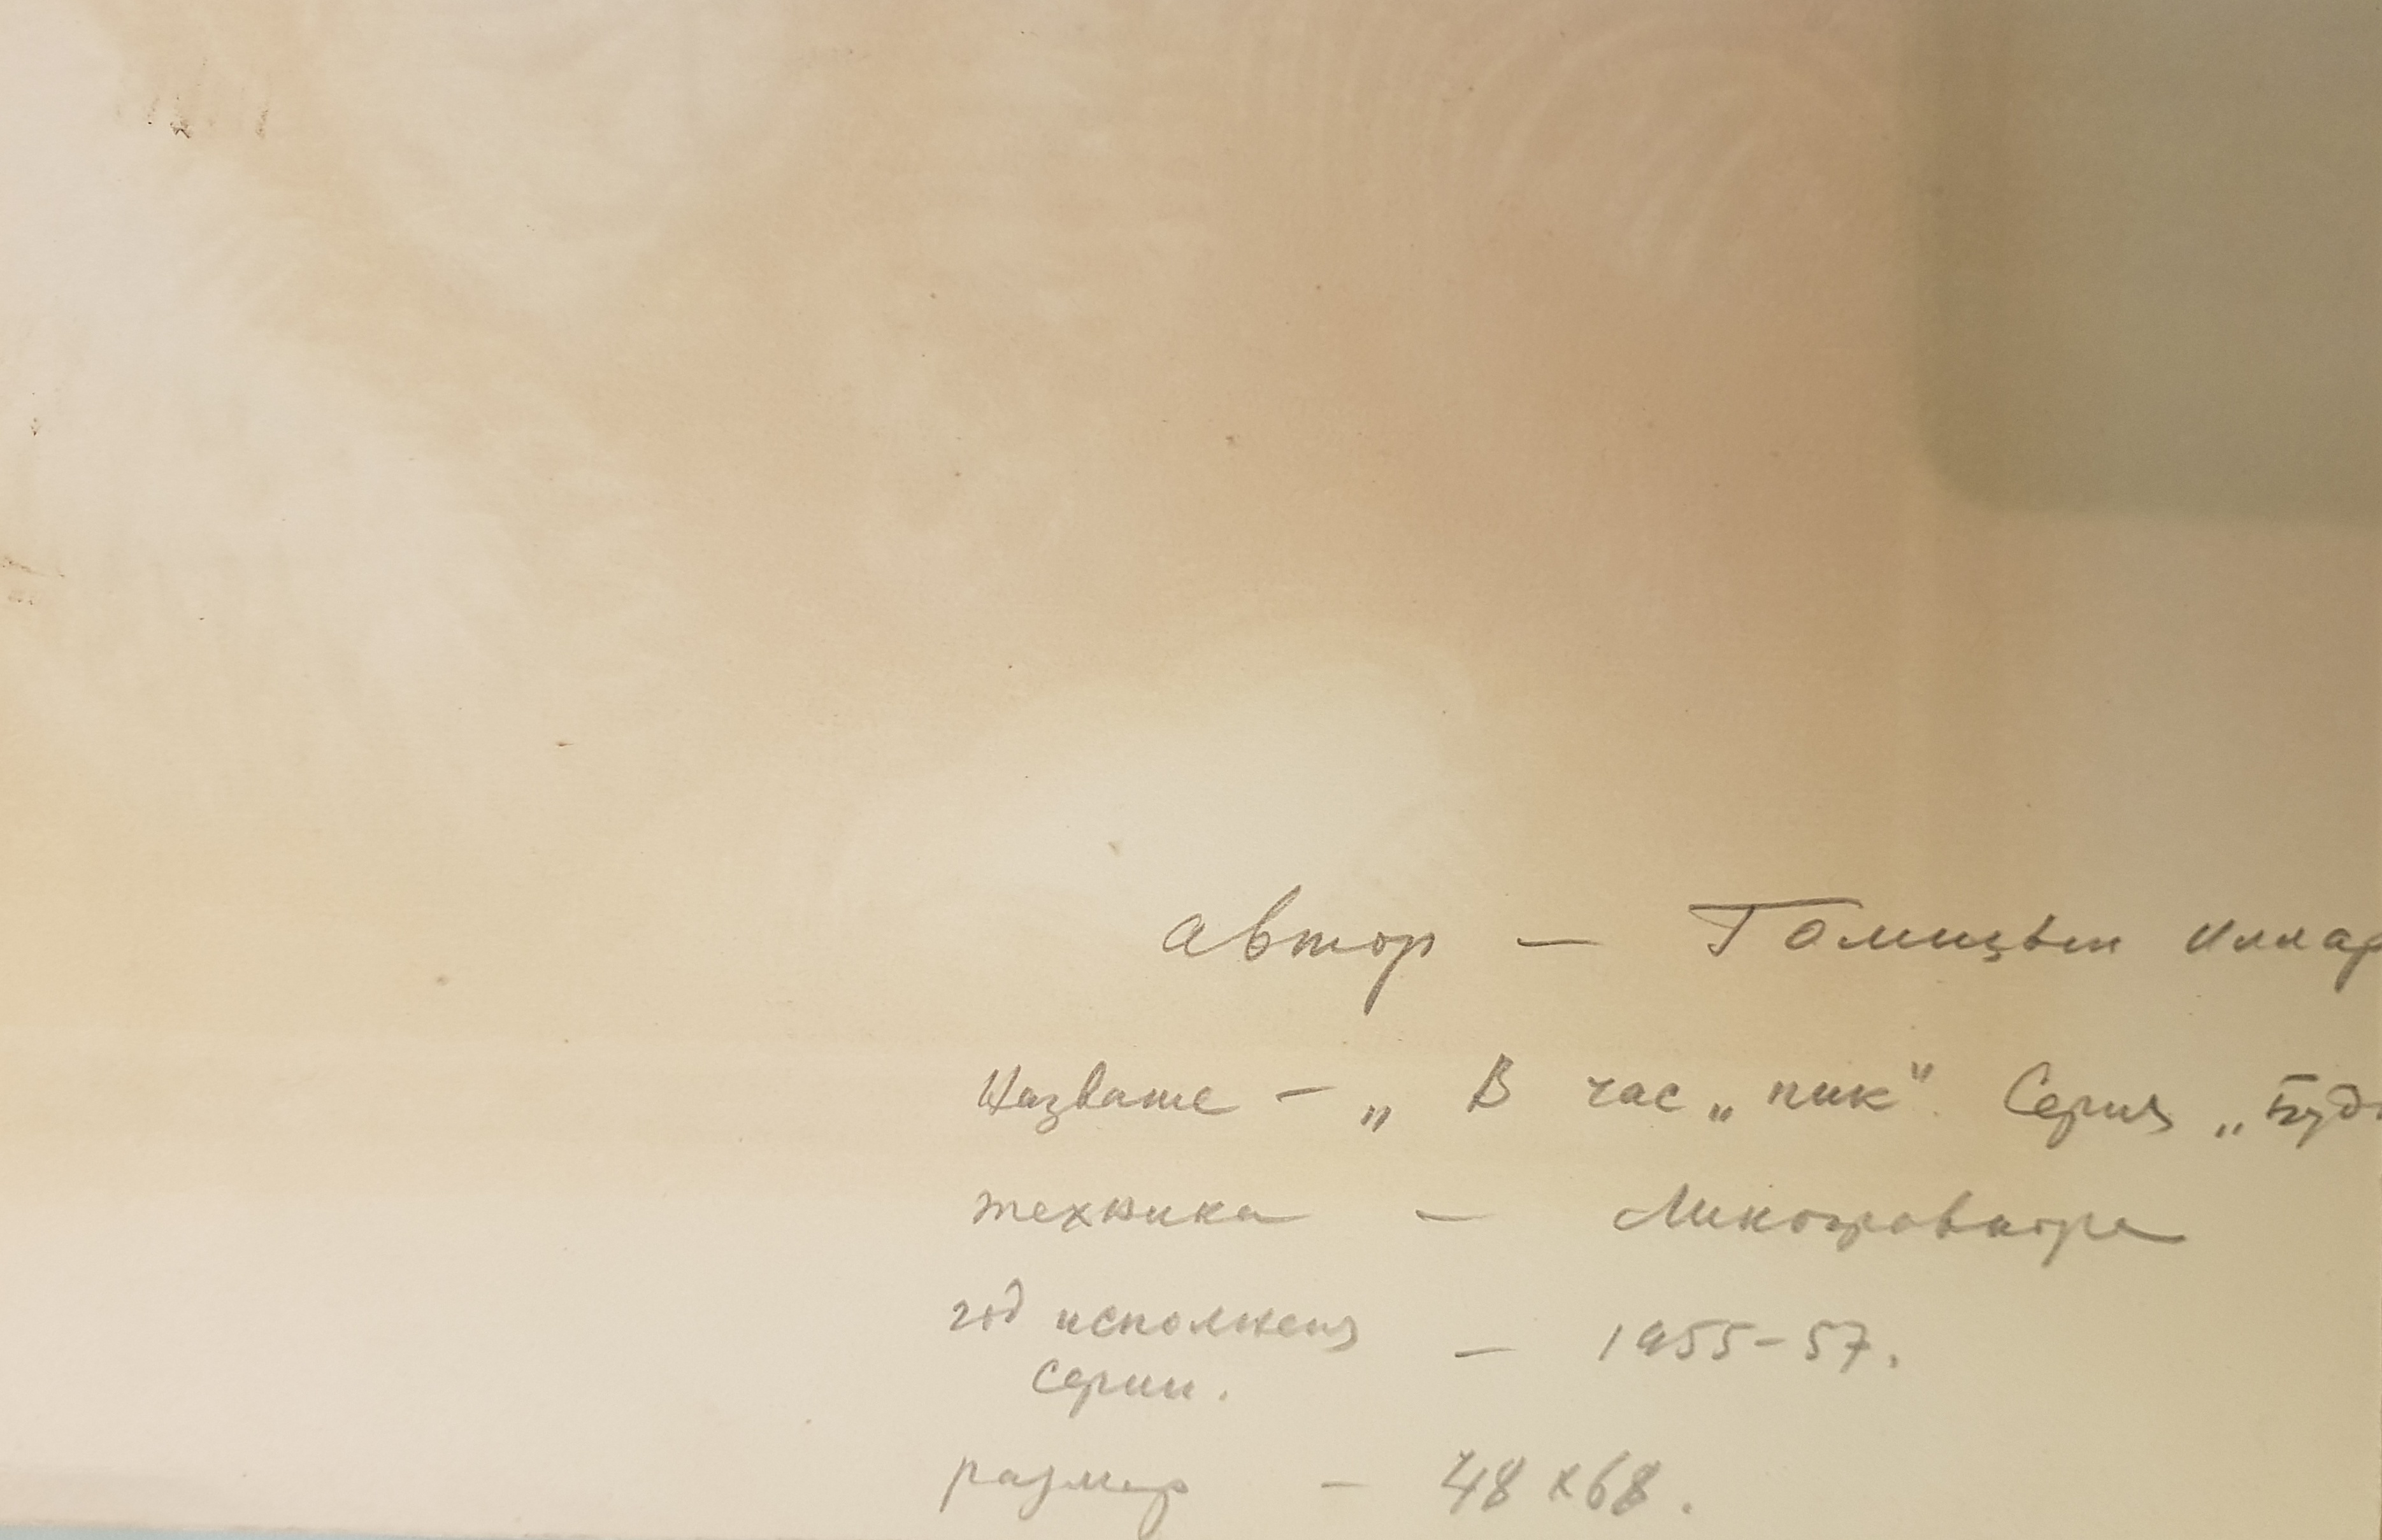 автор — Голицын Илла
Название — „ В час „пик". Серия „Буд
техника — Линогравюра
год исполнения — 1955-57.
серии.
размер — 48 x 68.